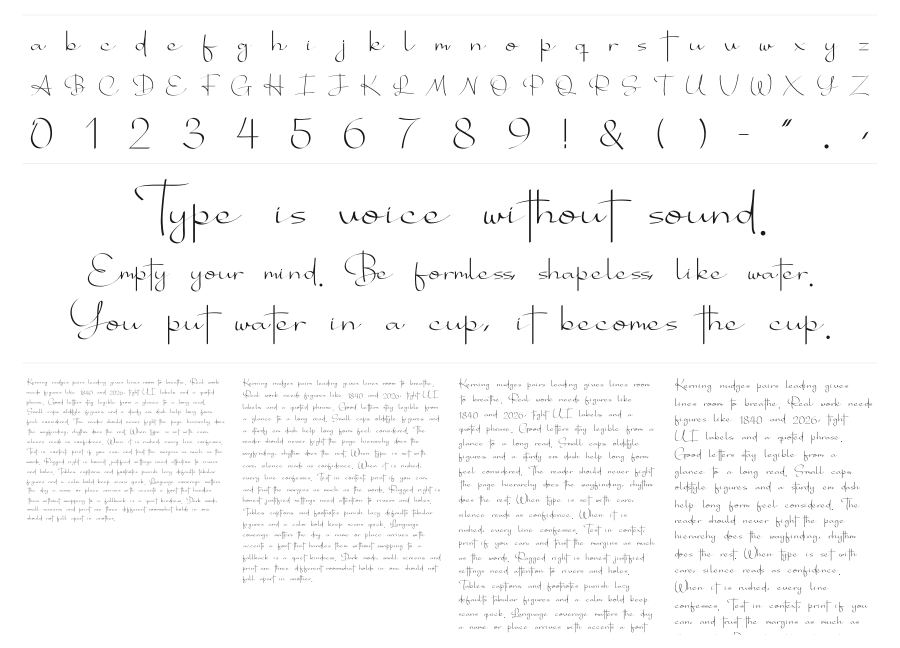 a b c d e f g h i j k l m n o p q r s t u v w x y z
A B C D E F G H I J K L M N O P Q R S T U V W X Y Z
0 1 2 3 4 5 6 7 8 9 ! & ( ) - " . ,
Type is voice without sound.
Empty your mind. Be formless, shapeless, like water.
You put water in a cup, it becomes the cup.
Kerning nudges pairs leading gives lines room to breathe. Real work
needs figures like 1840 and 2026, tight UI labels and a quoted
phrase. Good letters stay legible from a glance to a long read.
Small caps oldstyle figures and a sturdy em dash help long form
feel considered. The reader should never fight the page hierarchy does
the wayfinding, rhythm does the rest. When type is set with care,
silence reads as confidence. When it is rushed, every line confesses.
Test in context, print if you can, and trust the margins as much as the
words. Ragged right is honest, justified settings need attention to rivers
and holes. Tables captions and footnotes punish lazy defaults tabular
figures and a calm bold keep scans quick. Language coverage matters
the day a name or place arrives with accents a font that handles
them without swapping to a fallback is a quiet kindness. Dark mode,
small screens and print are three different rooms what holds in one
should not fall apart in another.
Kerning nudges pairs leading gives lines room to breathe.
Real work needs figures like 1840 and 2026, tight UI
labels and a quoted phrase. Good letters stay legible from
a glance to a long read. Small caps oldstyle figures and
a sturdy em dash help long form feel considered. The
reader should never fight the page hierarchy does the
wayfinding, rhythm does the rest. When type is set with
care, silence reads as confidence. When it is rushed,
every line confesses. Test in context, print if you can,
and trust the margins as much as the words. Ragged right is
honest, justified settings need attention to rivers and holes.
Tables captions and footnotes punish lazy defaults tabular
figures and a calm bold keep scans quick. Language
coverage matters the day a name or place arrives with
accents a font that handles them without swapping to a
fallback is a quiet kindness. Dark mode, small screens and
print are three different rooms what holds in one should not
fall apart in another.
Kerning nudges pairs leading gives lines room
to breathe. Real work needs figures like
1840 and 2026, tight UI labels and a
quoted phrase. Good letters stay legible from a
glance to a long read. Small caps oldstyle
figures and a sturdy em dash help long form
feel considered. The reader should never fight
the page hierarchy does the wayfinding, rhythm
does the rest. When type is set with care,
silence reads as confidence. When it is
rushed, every line confesses. Test in context,
print if you can, and trust the margins as much
as the words. Ragged right is honest, justified
settings need attention to rivers and holes.
Tables captions and footnotes punish lazy
defaults tabular figures and a calm bold keep
scans quick. Language coverage matters the day
a name or place arrives with accents a font
Kerning nudges pairs leading gives
lines room to breathe. Real work needs
figures like 1840 and 2026, tight
UI labels and a quoted phrase.
Good letters stay legible from a
glance to a long read. Small caps
oldstyle figures and a sturdy em dash
help long form feel considered. The
reader should never fight the page
hierarchy does the wayfinding, rhythm
does the rest. When type is set with
care, silence reads as confidence.
When it is rushed, every line
confesses. Test in context, print if you
can, and trust the margins as much as